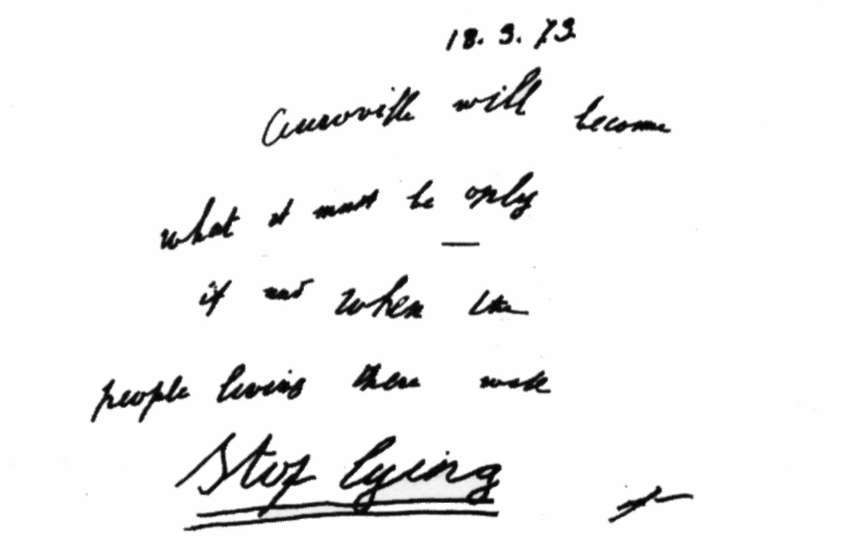 18. 3. 73.
Auroville will become
what it must be only
if and when the
people living there
Stop lying